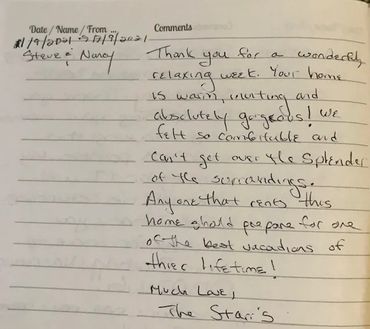 Date / Name / From ... Comments
1/9/2021 - 5/9/2021 Thank you for a wonderful,
Steve & Nancy relaxing week. Your home
is warm, inviting and
absolutely gorgeous! We
felt so comfortable and
can't get over the Splender
of the surroundings.
Anyone that rents this
home should prepare for one
of the best vacations of
thier lifetime!
Much Love,
The Starr's